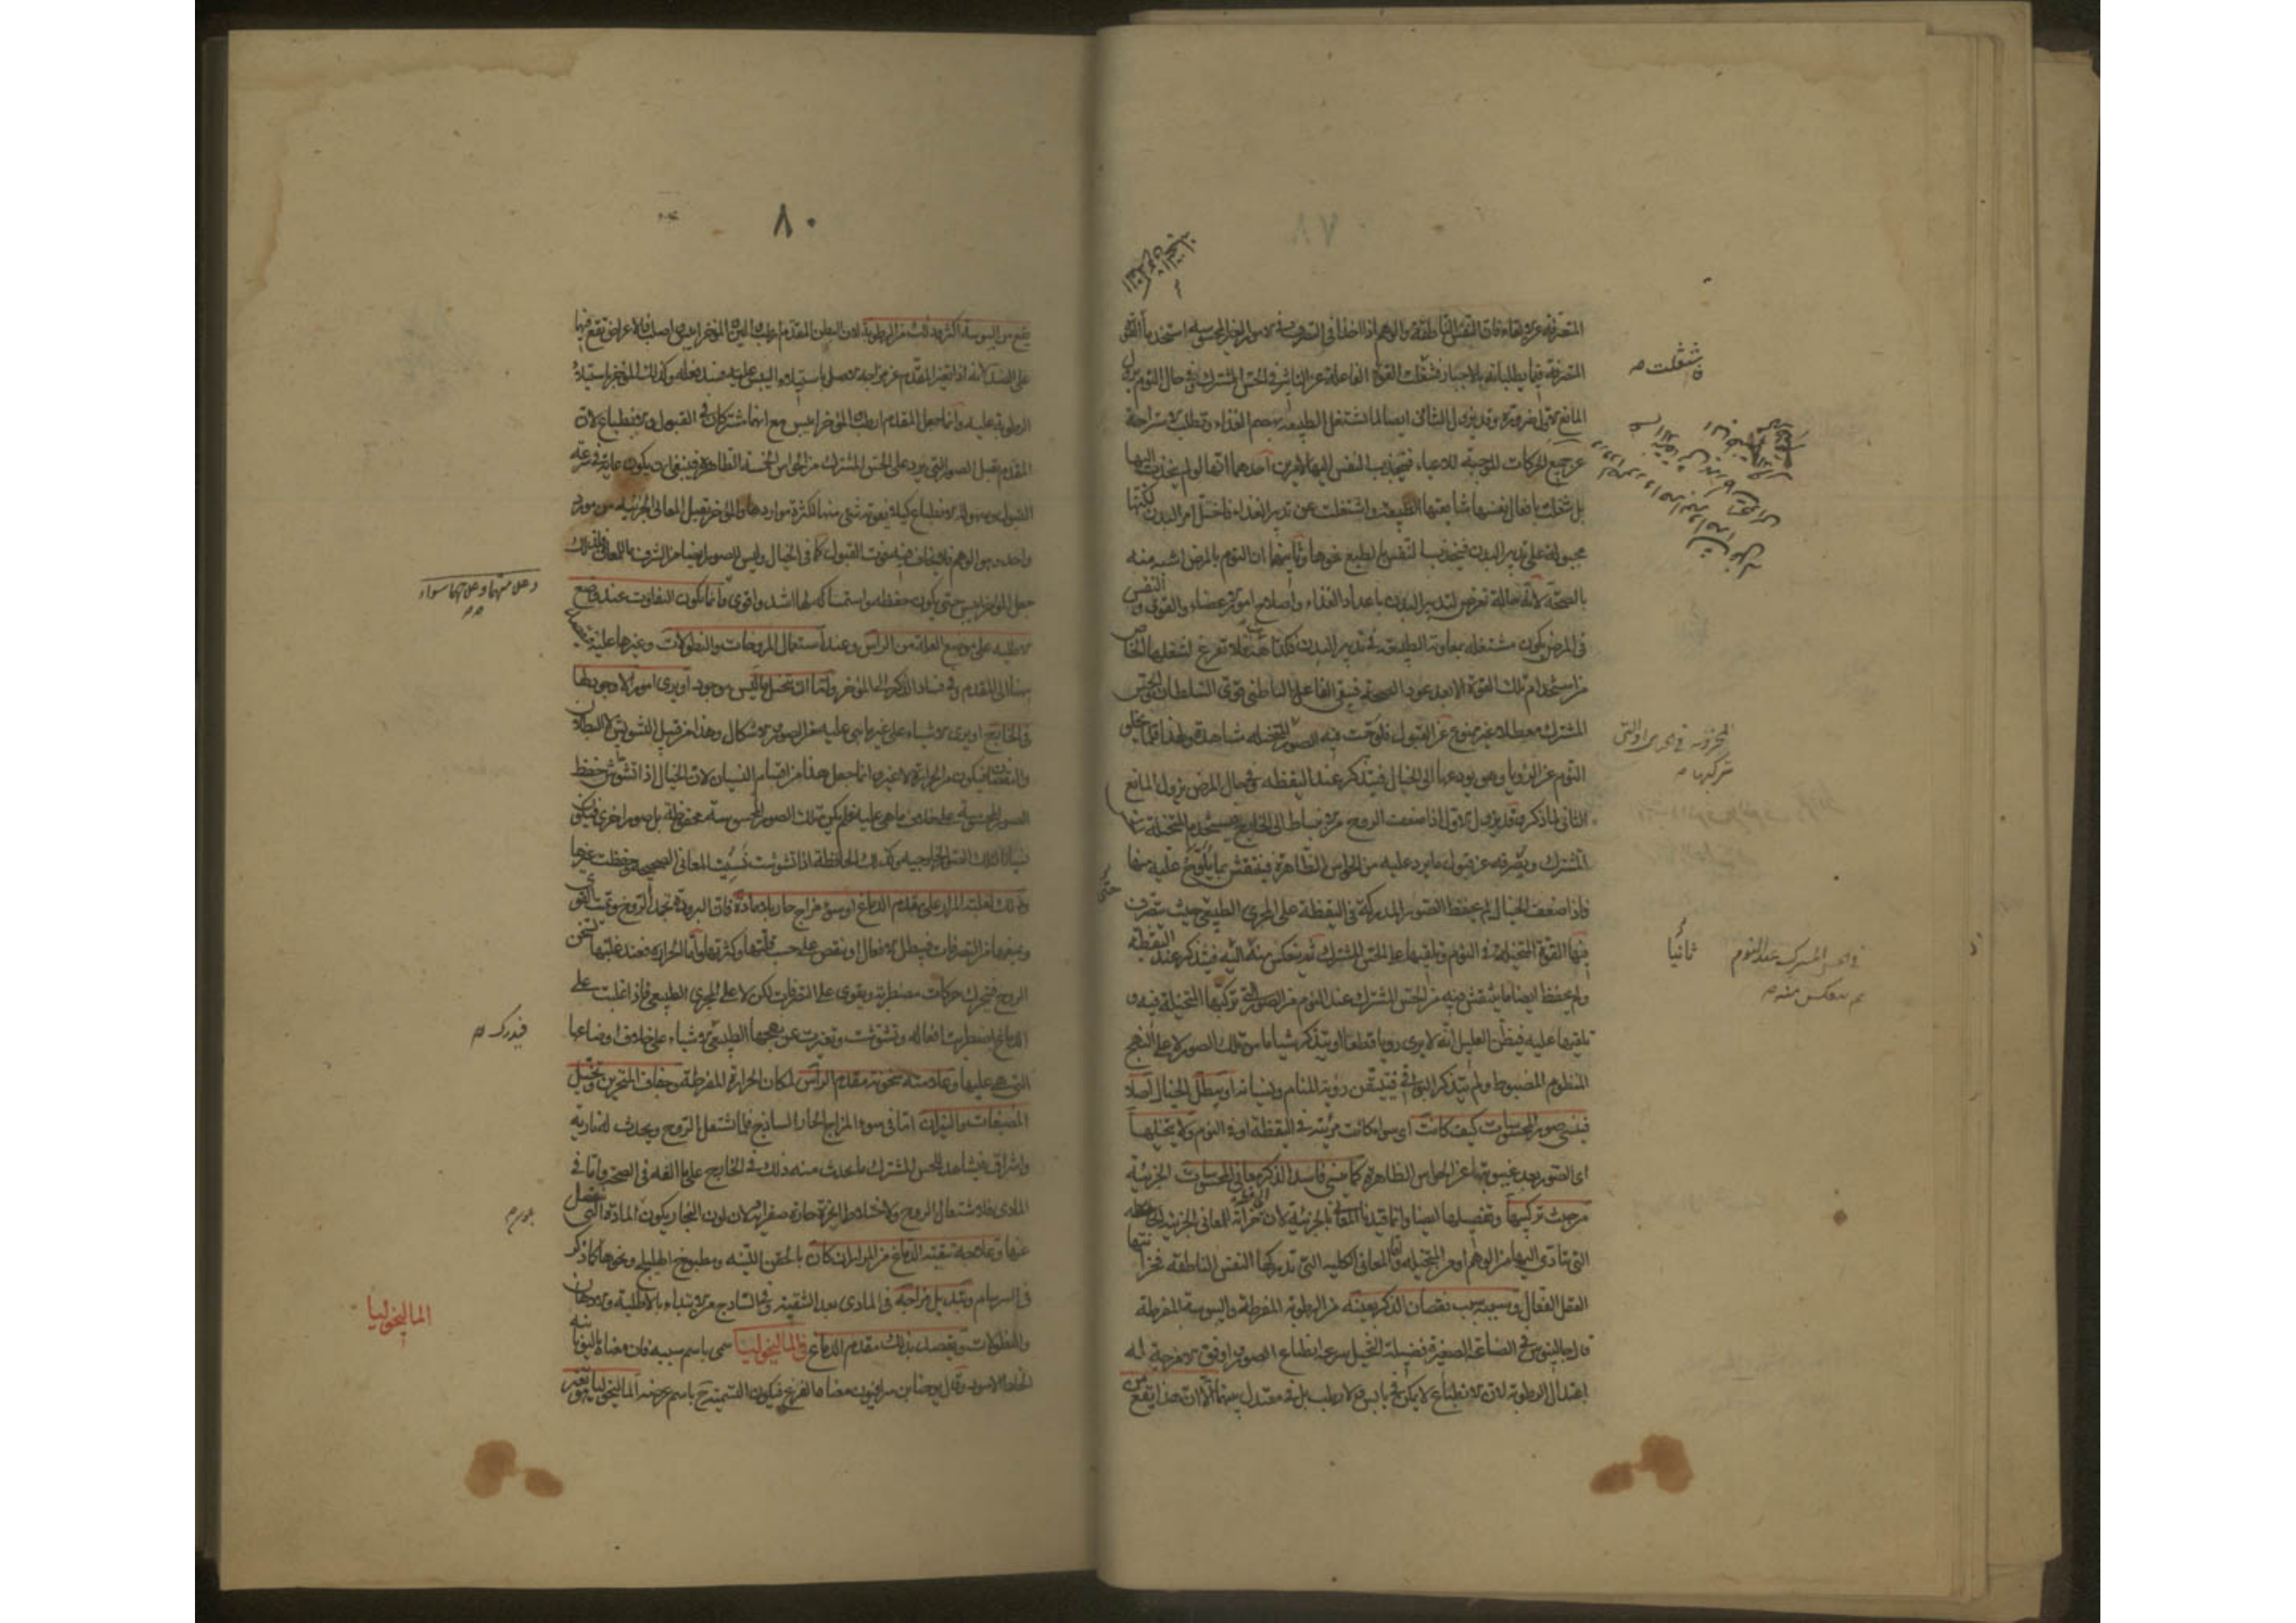 المتصرفة عن الالقاء فان النفس الناطقة والوهم اذا اخذا في التصرف في الامور الغير المحسوسة استخدما القوة
المتصرفة فيما يطلبانه بالاجبار فشغلت القوة الفاعلة عن التاثير في الحس المشترك وفي حال النوم يزول
المانع الاول ضرورة وقد يزول الثاني ايضا لما تشتغل الطبيعة بهضم الغذاء وتطلب الاستراحة
عن جميع الحركات الموجبة للاعياء فتنجذب النفس اليها لامرين احدهما انها لو لم ينجذب اليها
بل شغلت بافعال نفسها شايعتها الطبيعة واشتغلت عن تدبير الغذاء فاختل امر البدن لكنها
مجبولة على تدبير البدن فينجذب النفس بالطبع نحوها وثانيهما ان النوم بالمرض اشبه منه
بالصحة لانه حالة تعرض لتدبير البدن باعداد الغذاء واصلاح امور الاعضاء والقوى والنفس
في المرض يكون مشتغلة بمعاونة الطبيعة في تدبير البدن فكذا ههنا فلا تفرغ لشغلها الخاص
من استخدام تلك القوة الا بعد عود الصحة فيبقى الفاعل الباطني قوي السلطان والحس
المشترك معطلا غير ممنوع عن القبول فلوحت فيه الصور المتخيلة مشاهدة ولهذا قلما يخلو
النوم عن الرؤيا وهو يودعها الى الخيال فيتذكر عند اليقظة وفي حال المرض يزول المانع
الثاني لما ذكر وقد يزول الاول اذا ضعفت الروح
المشترك ويصرفه عن قبول ما يرد عليه من الحواس الظاهرة فينتقش بما يلوح عليه منها
فاذا ضعف الخيال لم يحفظ الصور المدركة في اليقظة على المجرى الطبيعي حيث تتصرف
فيها القوة المتخيلة في النوم وتلقيها على الحس المشترك ثم ينعكس منه اليه فيتذكر عند اليقظة
ولم يحفظ ايضا ما ينتقش فيه من الحس المشترك عند النوم من الصور التي تركبها المتخيلة فيه و
تلقيها عليه فيظن العليل انه لا يرى رؤيا قطعا او يتذكر شيئا ما من تلك الصور لا على النهج
المنظوم المضبوط ولم يتذكر البواقي فيتيقن رؤية المنام ونسيانه او يبطل الخيال اصلا
فينسى صور المحسوسات كيف كانت اي سواء كانت مرئية في اليقظة او في النوم ولا يتخيلها
اي الصور بعد غيبوبتها عن الحواس الظاهرة كما ينسى فاسد الذكر معاني المحسوسات الجزئية
من حيث تركيبها وتفصيلها ايضا وانما قيدنا المعاني بالجزئية لان الحافظة خزانة المعاني الجزئية
التي تتأدى اليها من الوهم او من المتخيلة واما المعاني الكلية التي تدركها النفس الناطقة فخزانتها
العقل الفعال وسببه سبب نقصان الذكر بعينه من الرطوبة المفرطة واليبوسة المفرطة
قال جالينوس في الصناعة الصغيرة فضيلة التخيل سرعة انطباع الصور واوفق الامزجة له
اعتدال الرطوبة لان الانطباع لا يكون في يابس ولا رطب بل في معتدل بينهما الا ان هذا يقع من
فشغلت
المخزونة في
تركبها
ثانيا
في الحس المشترك عند النوم
ثم ينعكس منه
حتى
٨٠
يقع من اليبوسة اكثر وذلك من الرطوبة لان البطن المقدم ارطب والين والمؤخر ايبس واصلب فالاعراض تقع فيها
على الضد لانه اذا تغير المقدم عن مزاجه الاصلي باستيلاء اليبس عليه فسد فعله وكذلك المؤخر باستيلاء
الرطوبة عليه وانما جعل المقدم ارطب والمؤخر ايبس مع انهما مشتركان في القبول والانطباع لان
المقدم يقبل الصور التي يرد على الحس المشترك من الحواس الخمسة الظاهرة فينبغي ان يكون غاية في سرعة
القبول وسهولة الانطباع كيلا يفوته شيء منها لكثرة مواردها والمؤخر يقبل المعاني الجزئية من مورد
واحد وهو الوهم فلا يخاف فيه فوت القبول كما في الخيال وليس للصور ايضا من الشرف ما للمعاني فلذلك
جعل المؤخر ايبس حتى يكون حفظه واستمساكه لها اشد واقوى وانما يكون التفاوت عند وضع
الاطلية على موضع العلة من الراس وعند استعمال المروخات والنطولات وغيرها عليه فيقصد
ههنا الى المقدم وفي فساد الذكر الى المؤخر واما ان يتخيل ما ليس موجود او يرى امورا لا وجود لها
في الخارج او يرى الاشياء على غير ما هي عليه من الصور والاشكال وهذا من قبيل التشويش لا البطلان
والنقصان فيكون من الحرارة لا غير وانما جعل هذا من اقسام النسيان لان الخيال اذا تشوش حفظ
الصور المحسوسة على خلاف ما هي عليه فلم يكن تلك الصور المحسوسة محفوظة بل صور اخرى فيكون
نسيانا لتلك الصور الخارجية وكذلك الحافظة اذا تشوشت نسيت المعاني الصحيحة وحفظت غيرها
وذلك لغلبة المرار على مقدم الدماغ او سوء مزاج حار بلا مادة فان البرودة تجمد الروح وتميت القوى
وتمنعها من التصرفات فيبطل الافعال او ينقص على حسب قلتها وكثرتها واما الحرارة فعند غلبتها تسخن
الروح فيتحرك حركات مضطربة ويقوى على التصرفات لكن لا على المجرى الطبيعي فاذا غلبت على
الدماغ اضطربت افعاله وتشوشت وتغيرت عن نهجها الطبيعي الاشياء على خلاف اوضاعها
التي هي عليها وعلامته سخونة مقدم الراس لمكان الحرارة المفرطة وجفاف المنخرين وتخيل
المضيئات والنيران اما في سوء المزاج الحار الساذج فلما تشتعل الروح ويحدث له نارية
واشراق فيشاهد الحس المشترك ما يحدث منه ذلك في الخارج على ما الفه في الصحة واما في
المادي فلاشتعال الروح ولاختلاط ابخرة حارة صفراء لان لون البخار يكون المادة التي تنفصل
عنها وعلاجه تنقية الدماغ من المرار ان كان بالحقن اللينة ومطبوخ الهليلج ونحوها كما ذكر
في السرسام وتبديل مزاجه في المادي بعد التنقية وفي الساذج من الابتداء بالاطلية والادهان
والنطولات ويقصد بذلك مقدم الدماغ في الماليخوليا سمي باسم سببه فان معناه باليونانية
الخلط الاسود وقال يوحنا بن سرافيون معناه الفزع فيكون التسمية باسم عرضه الماليخوليا تغير
وعلامتهما وعلاجهما سواء
فيدرك
بلون
الماليخوليا